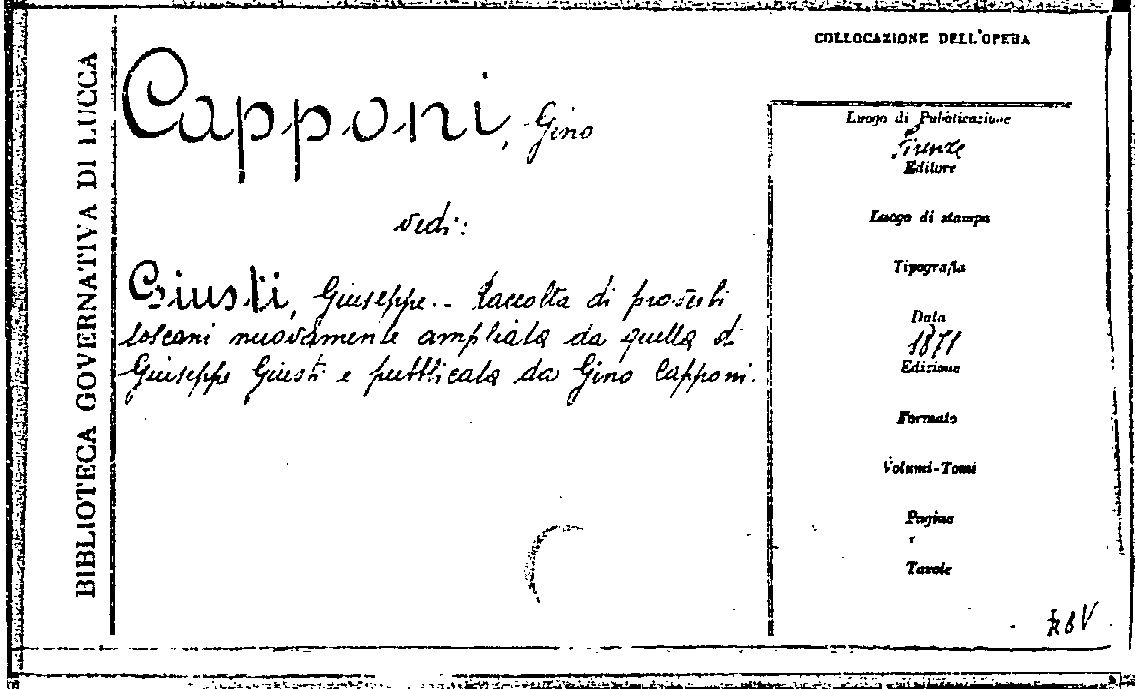 BIBLIOTECA GOVERNATIVA DI LUCCA
Capponi, Gino
vedi:
Giusti, Giuseppe. - Raccolta di proverbi
toscani nuovamente ampliata da quella di
Giuseppe Giusti e pubblicata da Gino Capponi.
COLLOCAZIONE DELL'OPERA
Luogo di Pubblicazione
Firenze
Editore
Luogo di stampa
Tipografia
Data
1871
Edizione
Formato
Volumi-Tomi
Pagine
Tavole